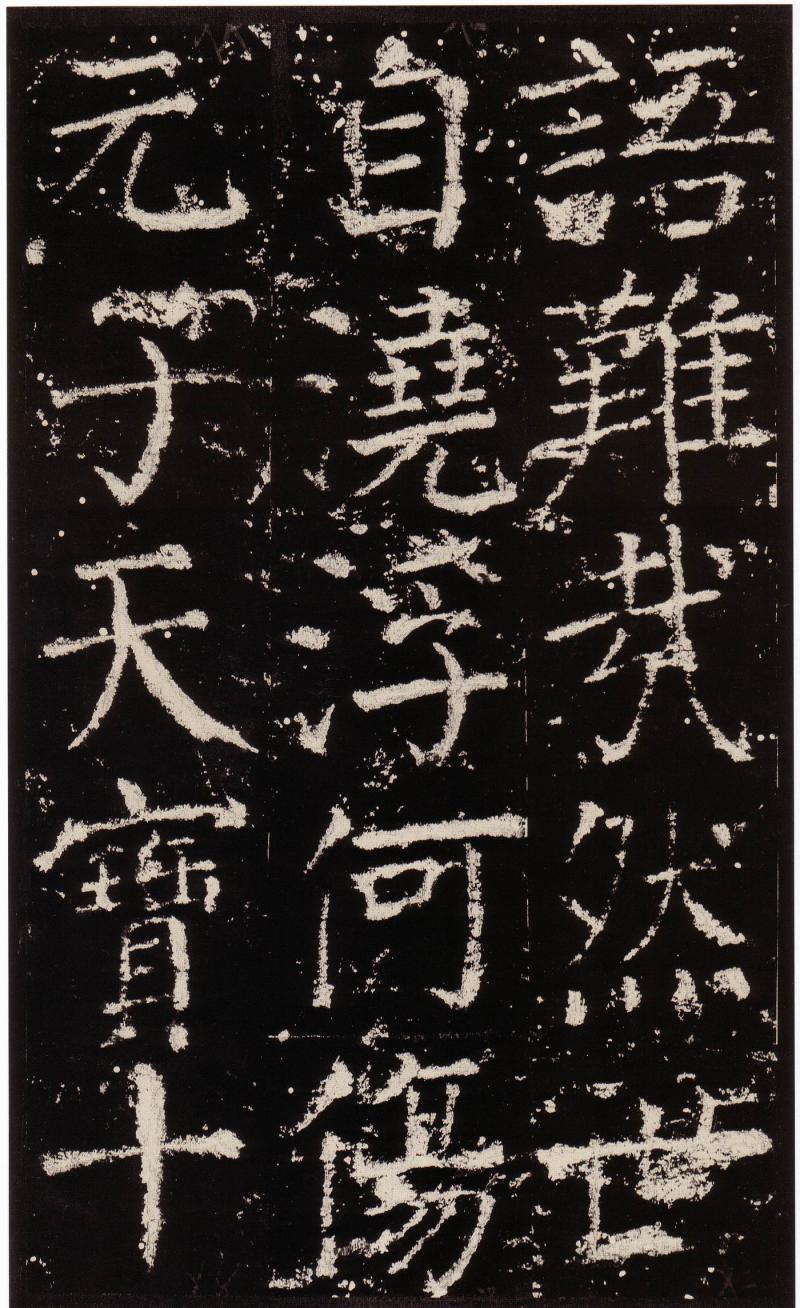 語難哉然世
自澆浮何傷
元子天寶十